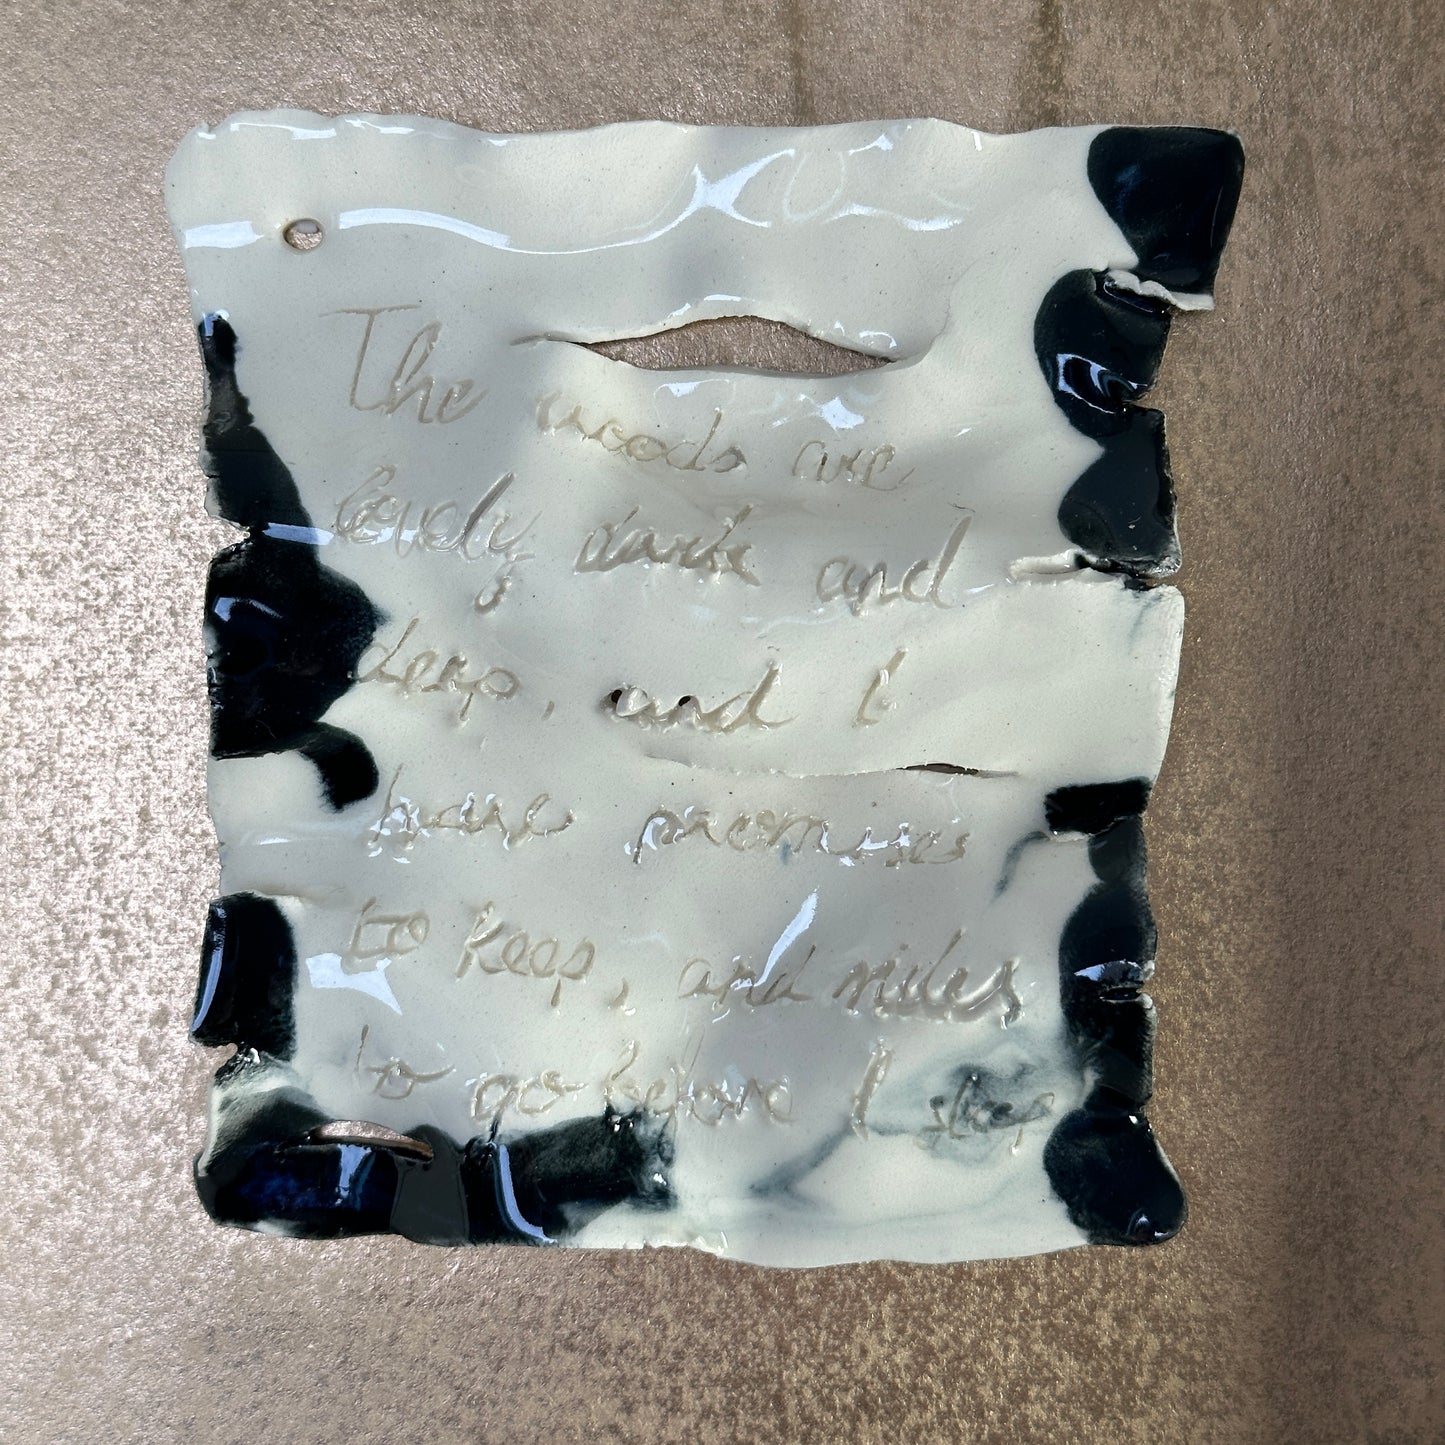 The woods are
lovely dark and
deep, and I
have promises
to keep, and miles
to go before I sleep